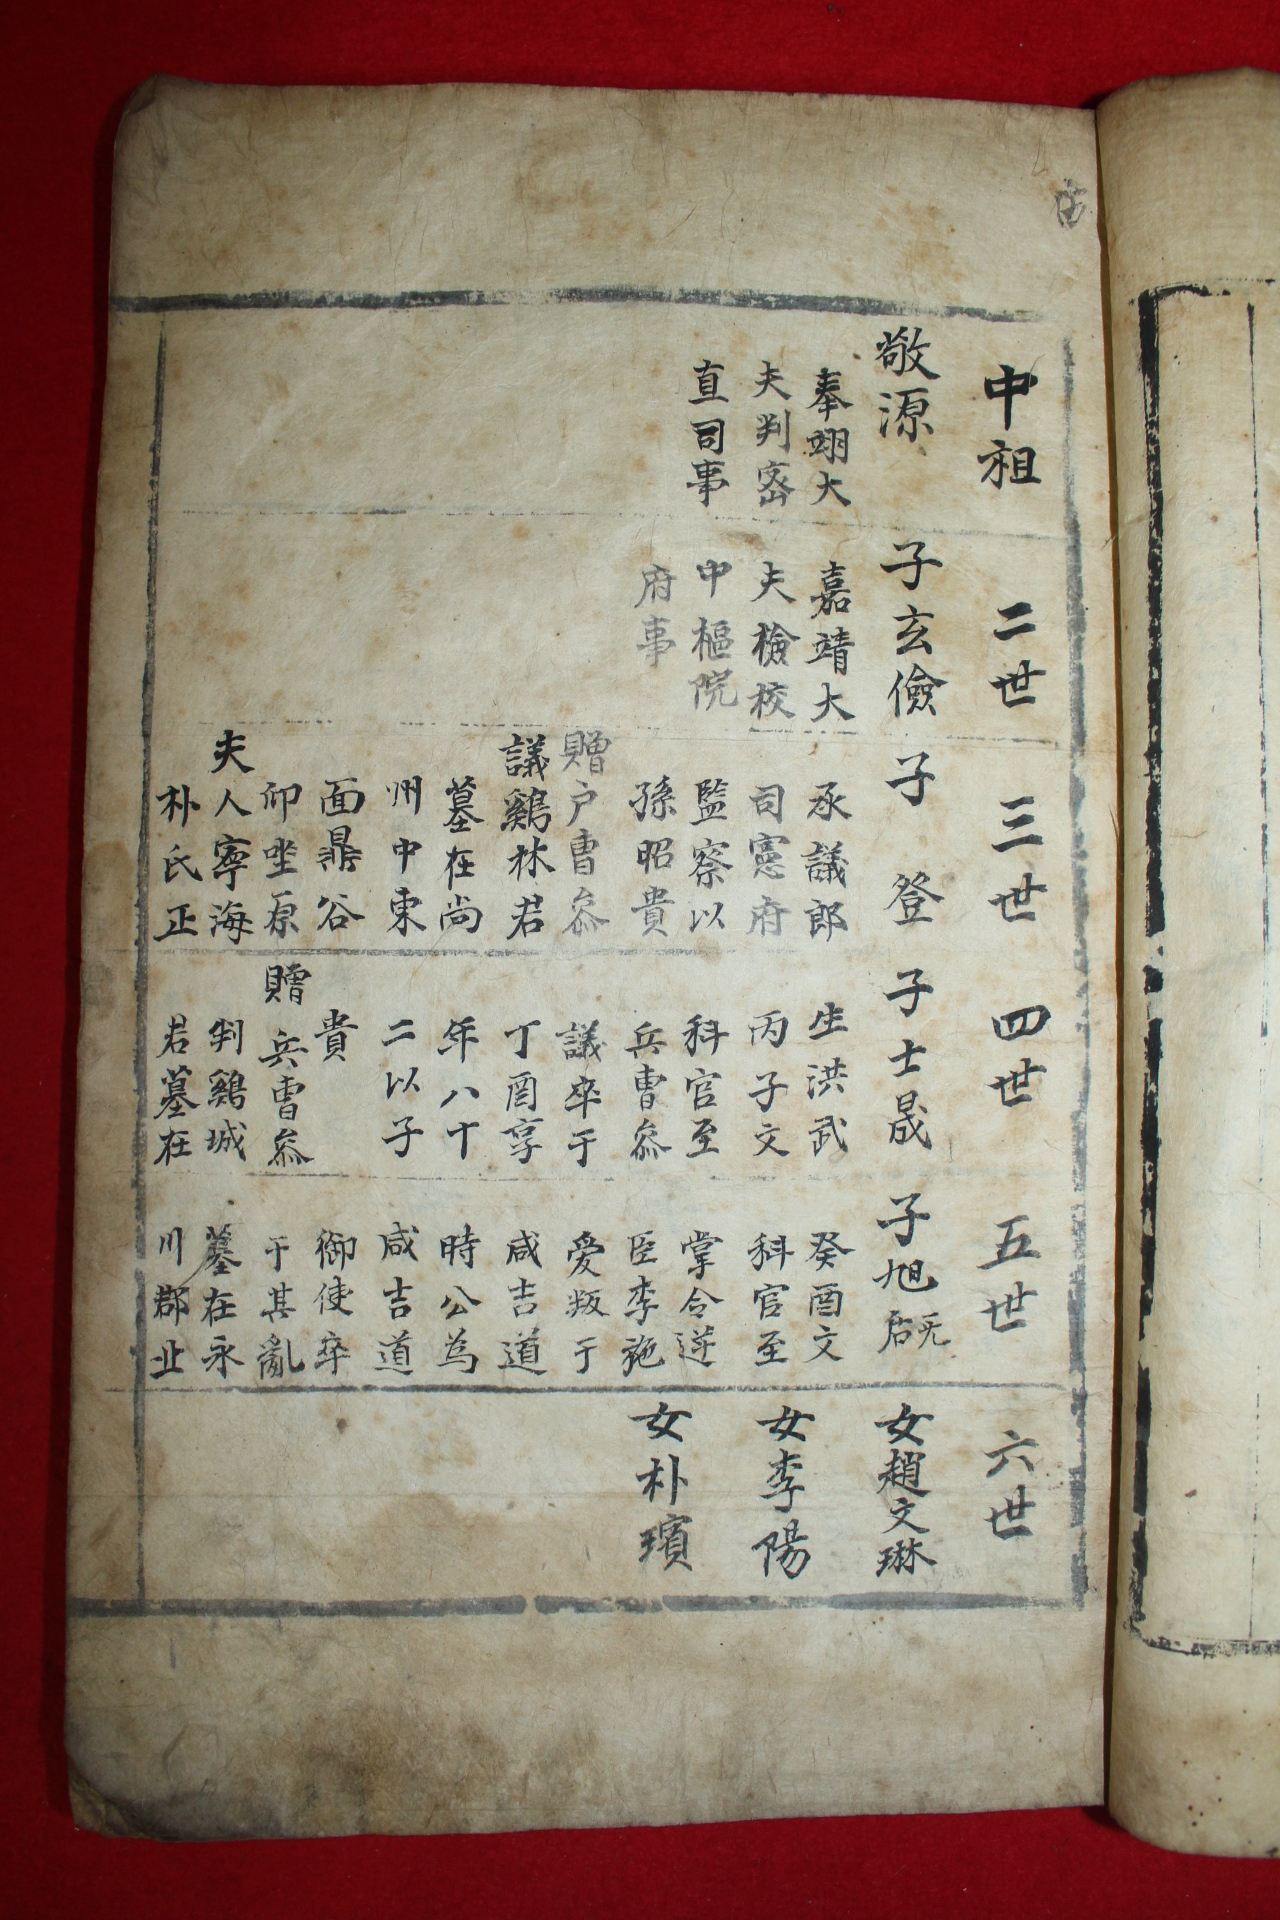 中祖
敬源
奉翊大
夫判密
直司事
二世
子玄儉
嘉靖大
夫檢校
中樞院
府事
三世
子登
承議郎
司憲府
監察以
孫昭貴
贈户曹叅
議鷄林君
墓在尙
州中東
面鼎谷
卯坐原
夫人寧海
朴氏正
四世
子士晟
生洪武
丙子文
科官至
兵曹叅
議卒于
丁酉享
年八十
二以子
貴
贈兵曹叅
判鷄城
君墓在
五世
子旭
无后
癸酉文
科官至
掌令逆
臣李施
爱叛于
咸吉道
時公為
咸吉道
御使卒
于其亂
墓在永
川郡北
六世
女趙文琳
女李陽
女朴璸